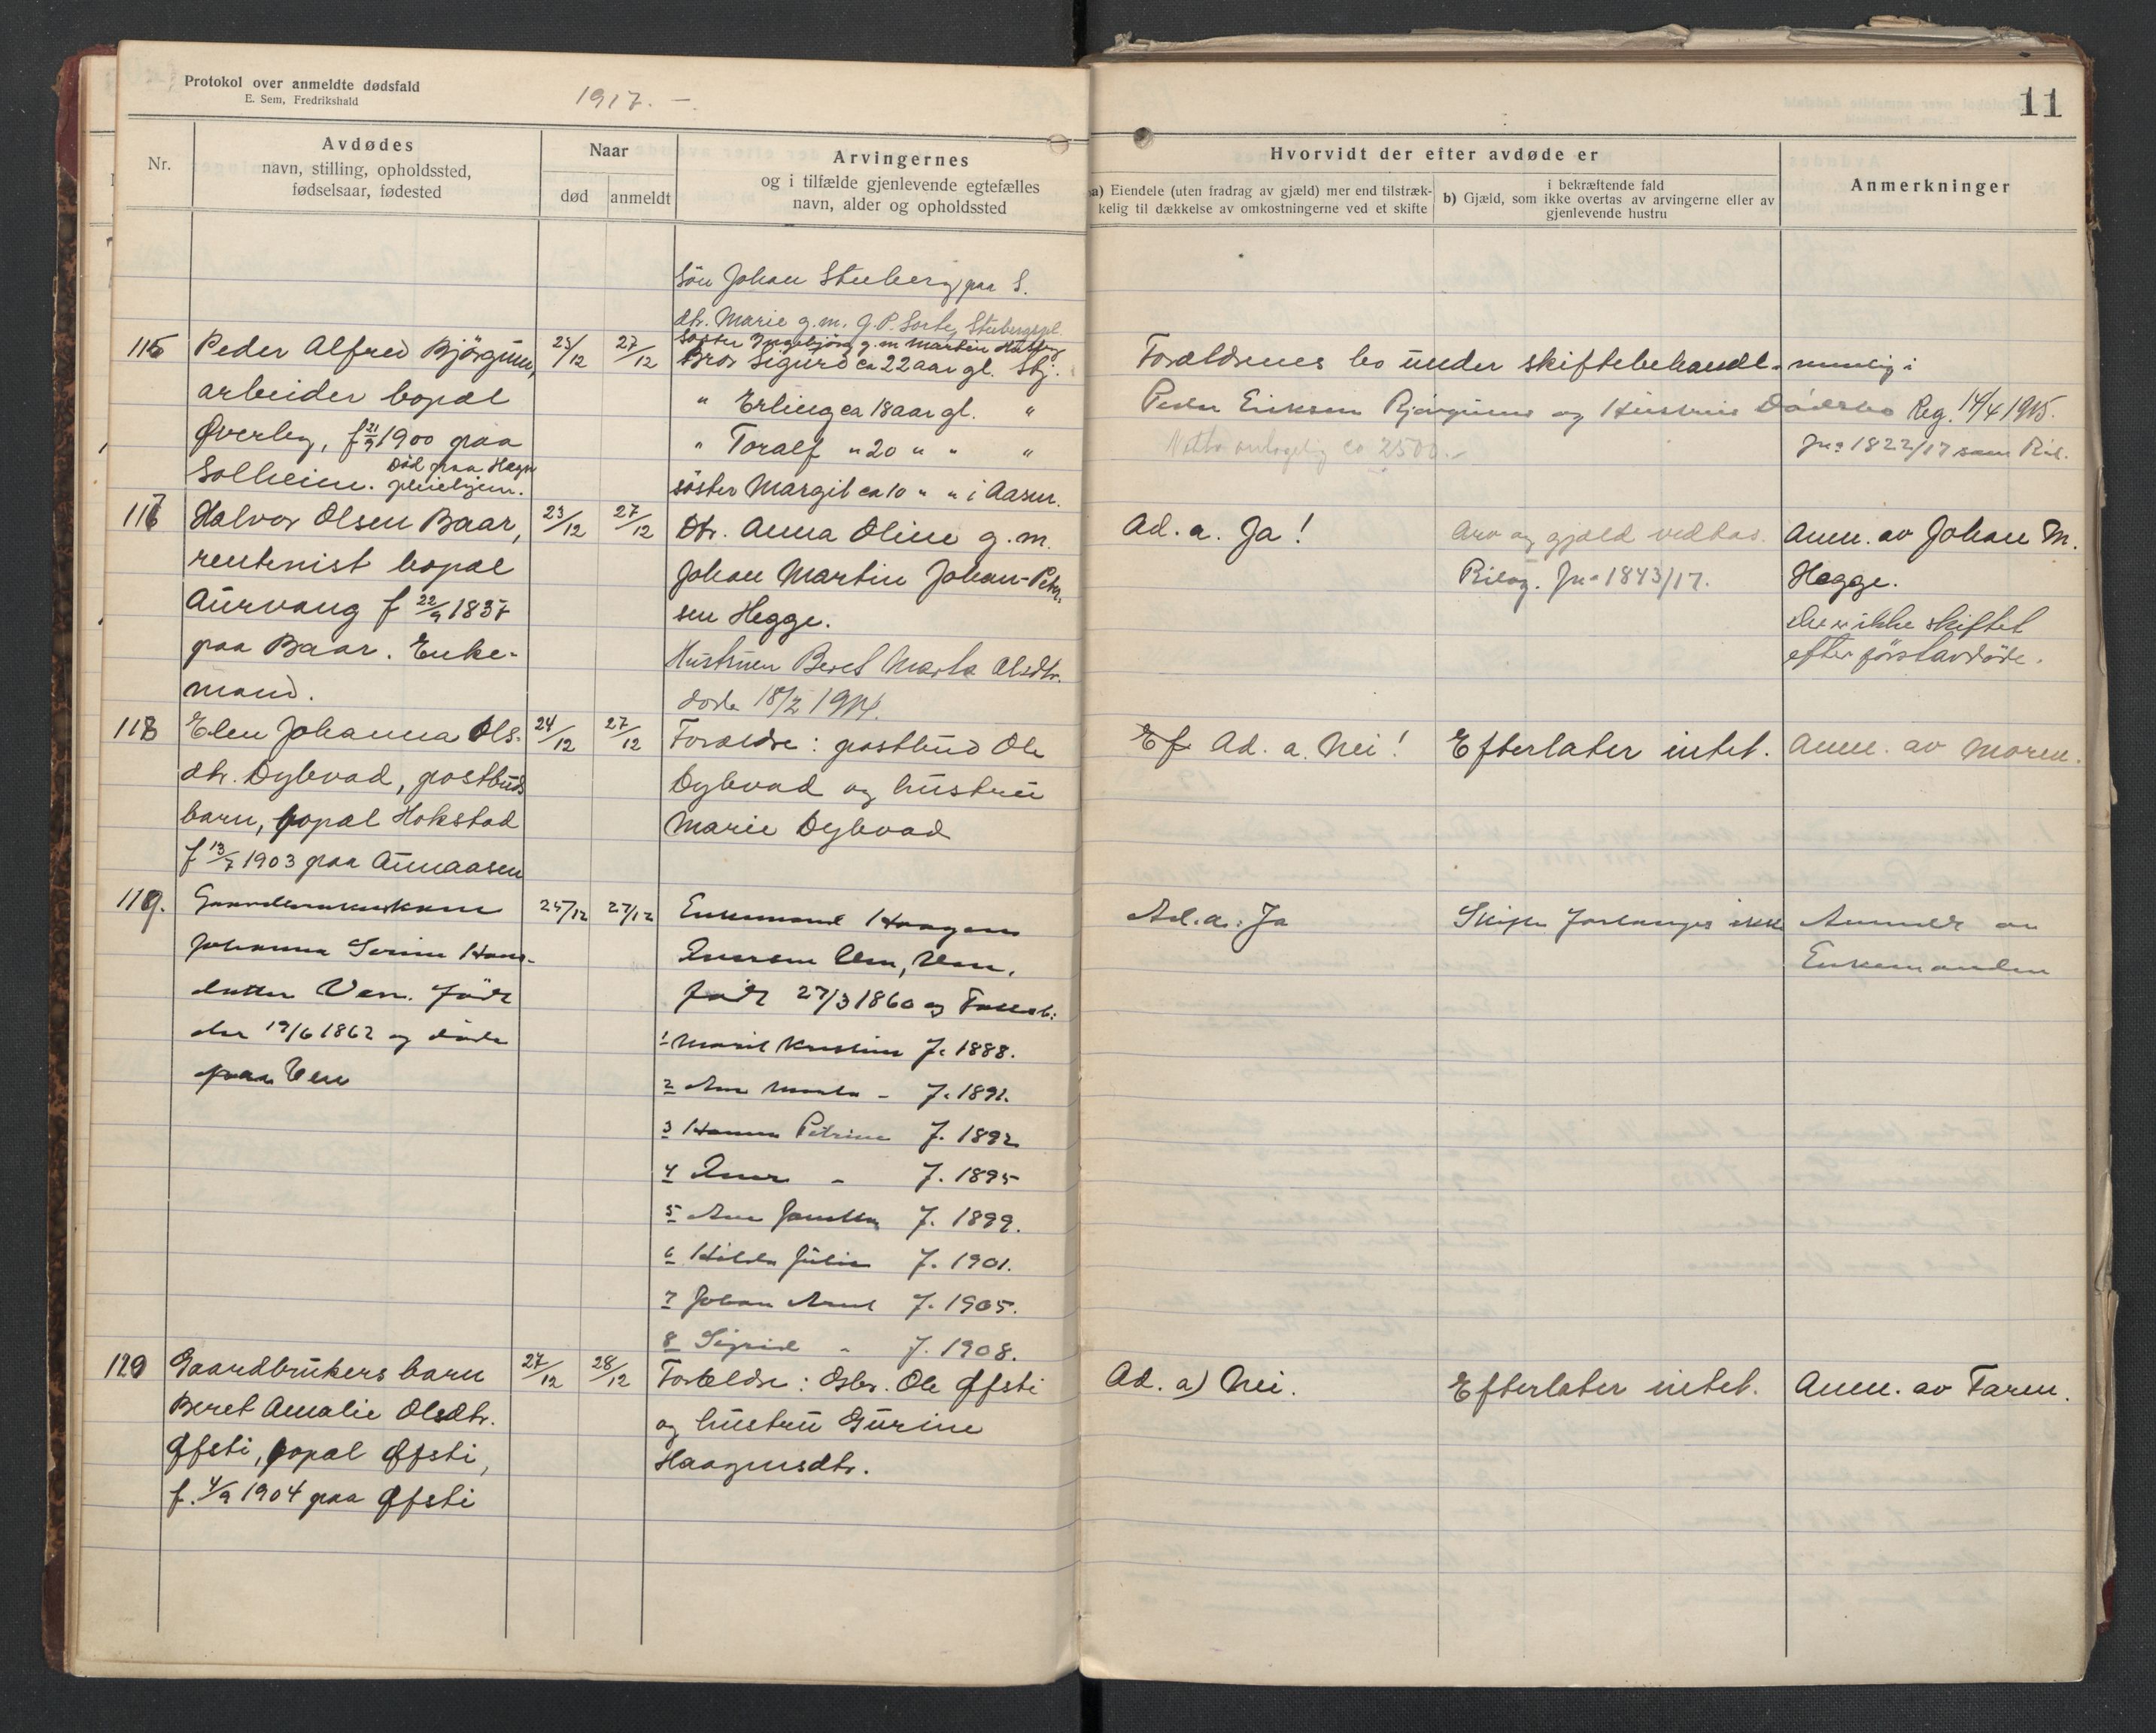 Protokol over anmeldte dødsfald
E. Sem, Fredrikshald
1917. -
11
Nr.
Avdødes
navn, stilling, opholdssted,
fødselsaar, fødested
Naar
død
anmeldt
Arvingernes
og i tilfælde gjenlevende egtefælles
navn, alder og opholdssted
Hvorvidt der efter avdøde er
a) Eiendele (uten fradrag av gjæld) mer end tilstræk-
kelig til dækkelse av omkostningerne ved et skifte
i bekræftende fald
b) Gjæld, som ikke overtas av arvingerne eller av
gjenlevende hustru
Anmerkninger
Sön Johan Steeberg paa S.
dtr. Marie g.m. G.P. Sorte, Steebergspl.
Söster Ingebjörg g.m Martin
116
Peder Alfred Bjørgum,
arbeider bopæl
Øverby, f 21/9 1900 paa
Solheim. Död paa Hegra
pleiehjem.
23/12
27/12
Bror Sigurd ca 22 aar gl. Stj.
" Erling ca 18 aar gl. "
" Toralf " 20 " " "
söster Margit ca 10 " " i Aasen.
Forældrenes bo under skiftebehandl. nemlig i
Peder Eriksen Bjørgums og Hustrus Dödsbo Reg. 14/4 1915.
Netto antagelig ca 2500.-
Jn= 1822/17 som Bil.
117
Halvor Olsen Baar,
rentenist bopæl
Aurvang f 22/9 1835
paa Baar. Enke-
mand.
23/12
27/12
Dtr. Anna Oline g.m.
Johan Martin Johan-Peter-
sen Hegge.
Hustruen Beret Marta Olsdtr.
döde 18/2 1914.
Ad. a. Ja!
Arv og gjæld vedtas.
Bilag. Jn= 1843/17.
Anm. av Johan M.
Hegge.
Der er ikke skiftet
efter förstavdöde.
118
Elen Johanna Ols-
dtr. Dybvad, postbuds
barn, bopæl Hokstad
f 13/7 1903 paa Aunaasen
24/12
27/12
Forældre: postbud Ole
Dybvad og hustru
Marie Dybvad
Ef Ad. a. Nei!
Efterlater intet.
Anm. av moren.
119.
Gaardbrukerkone
Johanna Serine Hans-
datter Ven. Född
den 19/6 1862 og döde
paa Ven
25/12
27/12
Enkemand Haagen
Ven, Ven,
född 27/3 1860 og
1 Marit Kristine f. 1888.
2 Ane Marta - f. 1891.
3 Hanna Petrine f. 1892
4 - f. 1895
5 Ane f. 1899.
6 Hilda Julie f. 1901.
7 Johan Arnt f. 1905.
8 Sigrid - f. 1908.
Ad. a: Ja
Skifte forlanges ikke
Anmeldt av
Enkemanden
120
Gaardbrukers barn
Beret Amalie Olsdtr.
Øfsti, bopæl Øfsti,
f. 4/9 1904 paa Øfsti
27/12
28/12
Forældre: Gsbr. Ole Øfsti
og hustru Gurine
Haagensdtr.
Ad. a) Nei.
Efterlater intet.
Anm. av Faren.